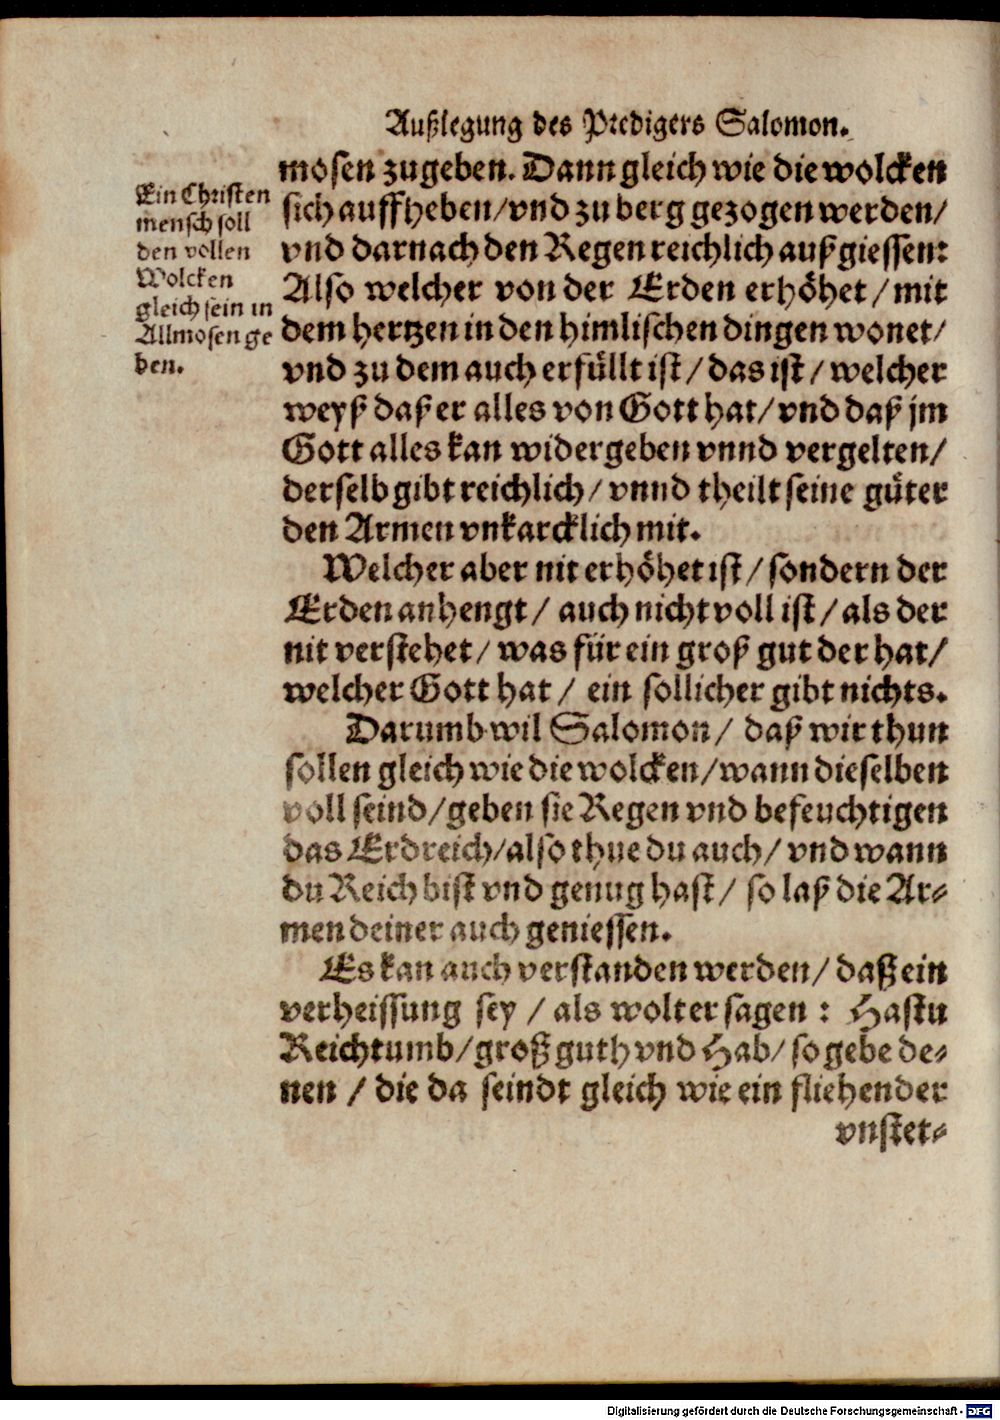 Außlegung des Predigers Salomon.
Ein Christen
mensch soll
den vollen
Wolcken
gleich sein in
Allmosen ge
ben.
mosen zugeben. Dann gleich wie die wolcken
sich auffheben/vnd zu berg gezogen werden/
vnd darnach den Regen reichlich außgiessen:
Also welcher von der Erden erhöhet/mit
dem hertzen in den himlischen dingen wonet/
vnd zu dem auch erfüllt ist/das ist/welcher
weyß daß er alles von Gott hat/vnd daß jm
Gott alles kan widergeben vnnd vergelten/
derselb gibt reichlich/vnnd theilt seine güter
den Armen vnkarcklich mit.
Welcher aber nit erhöhet ist/sondern der
Erden anhengt/ auch nicht voll ist/als der
nit verstehet/was für ein groß gut der hat/
welcher Gott hat/ ein sollicher gibt nichts.
Darumb wil Salomon/ daß wir thun
sollen gleich wie die wolcken/wann dieselben
voll seind/geben sie Regen vnd befeuchtigen
das Erdreich/also thue du auch/vnd wann
du Reich bist vnd genug hast/ so laß die Ar-
men deiner auch geniessen.
Es kan auch verstanden werden/daß ein
verheissung sey / als wolt er sagen : Hastu
Reichtumb/groß guth vnd Hab/so gebe de-
nen / die da seindt gleich wie ein fliehender
vnstet-
Digitalisierung gefördert durch die Deutsche Forschungsgemeinschaft - DFG